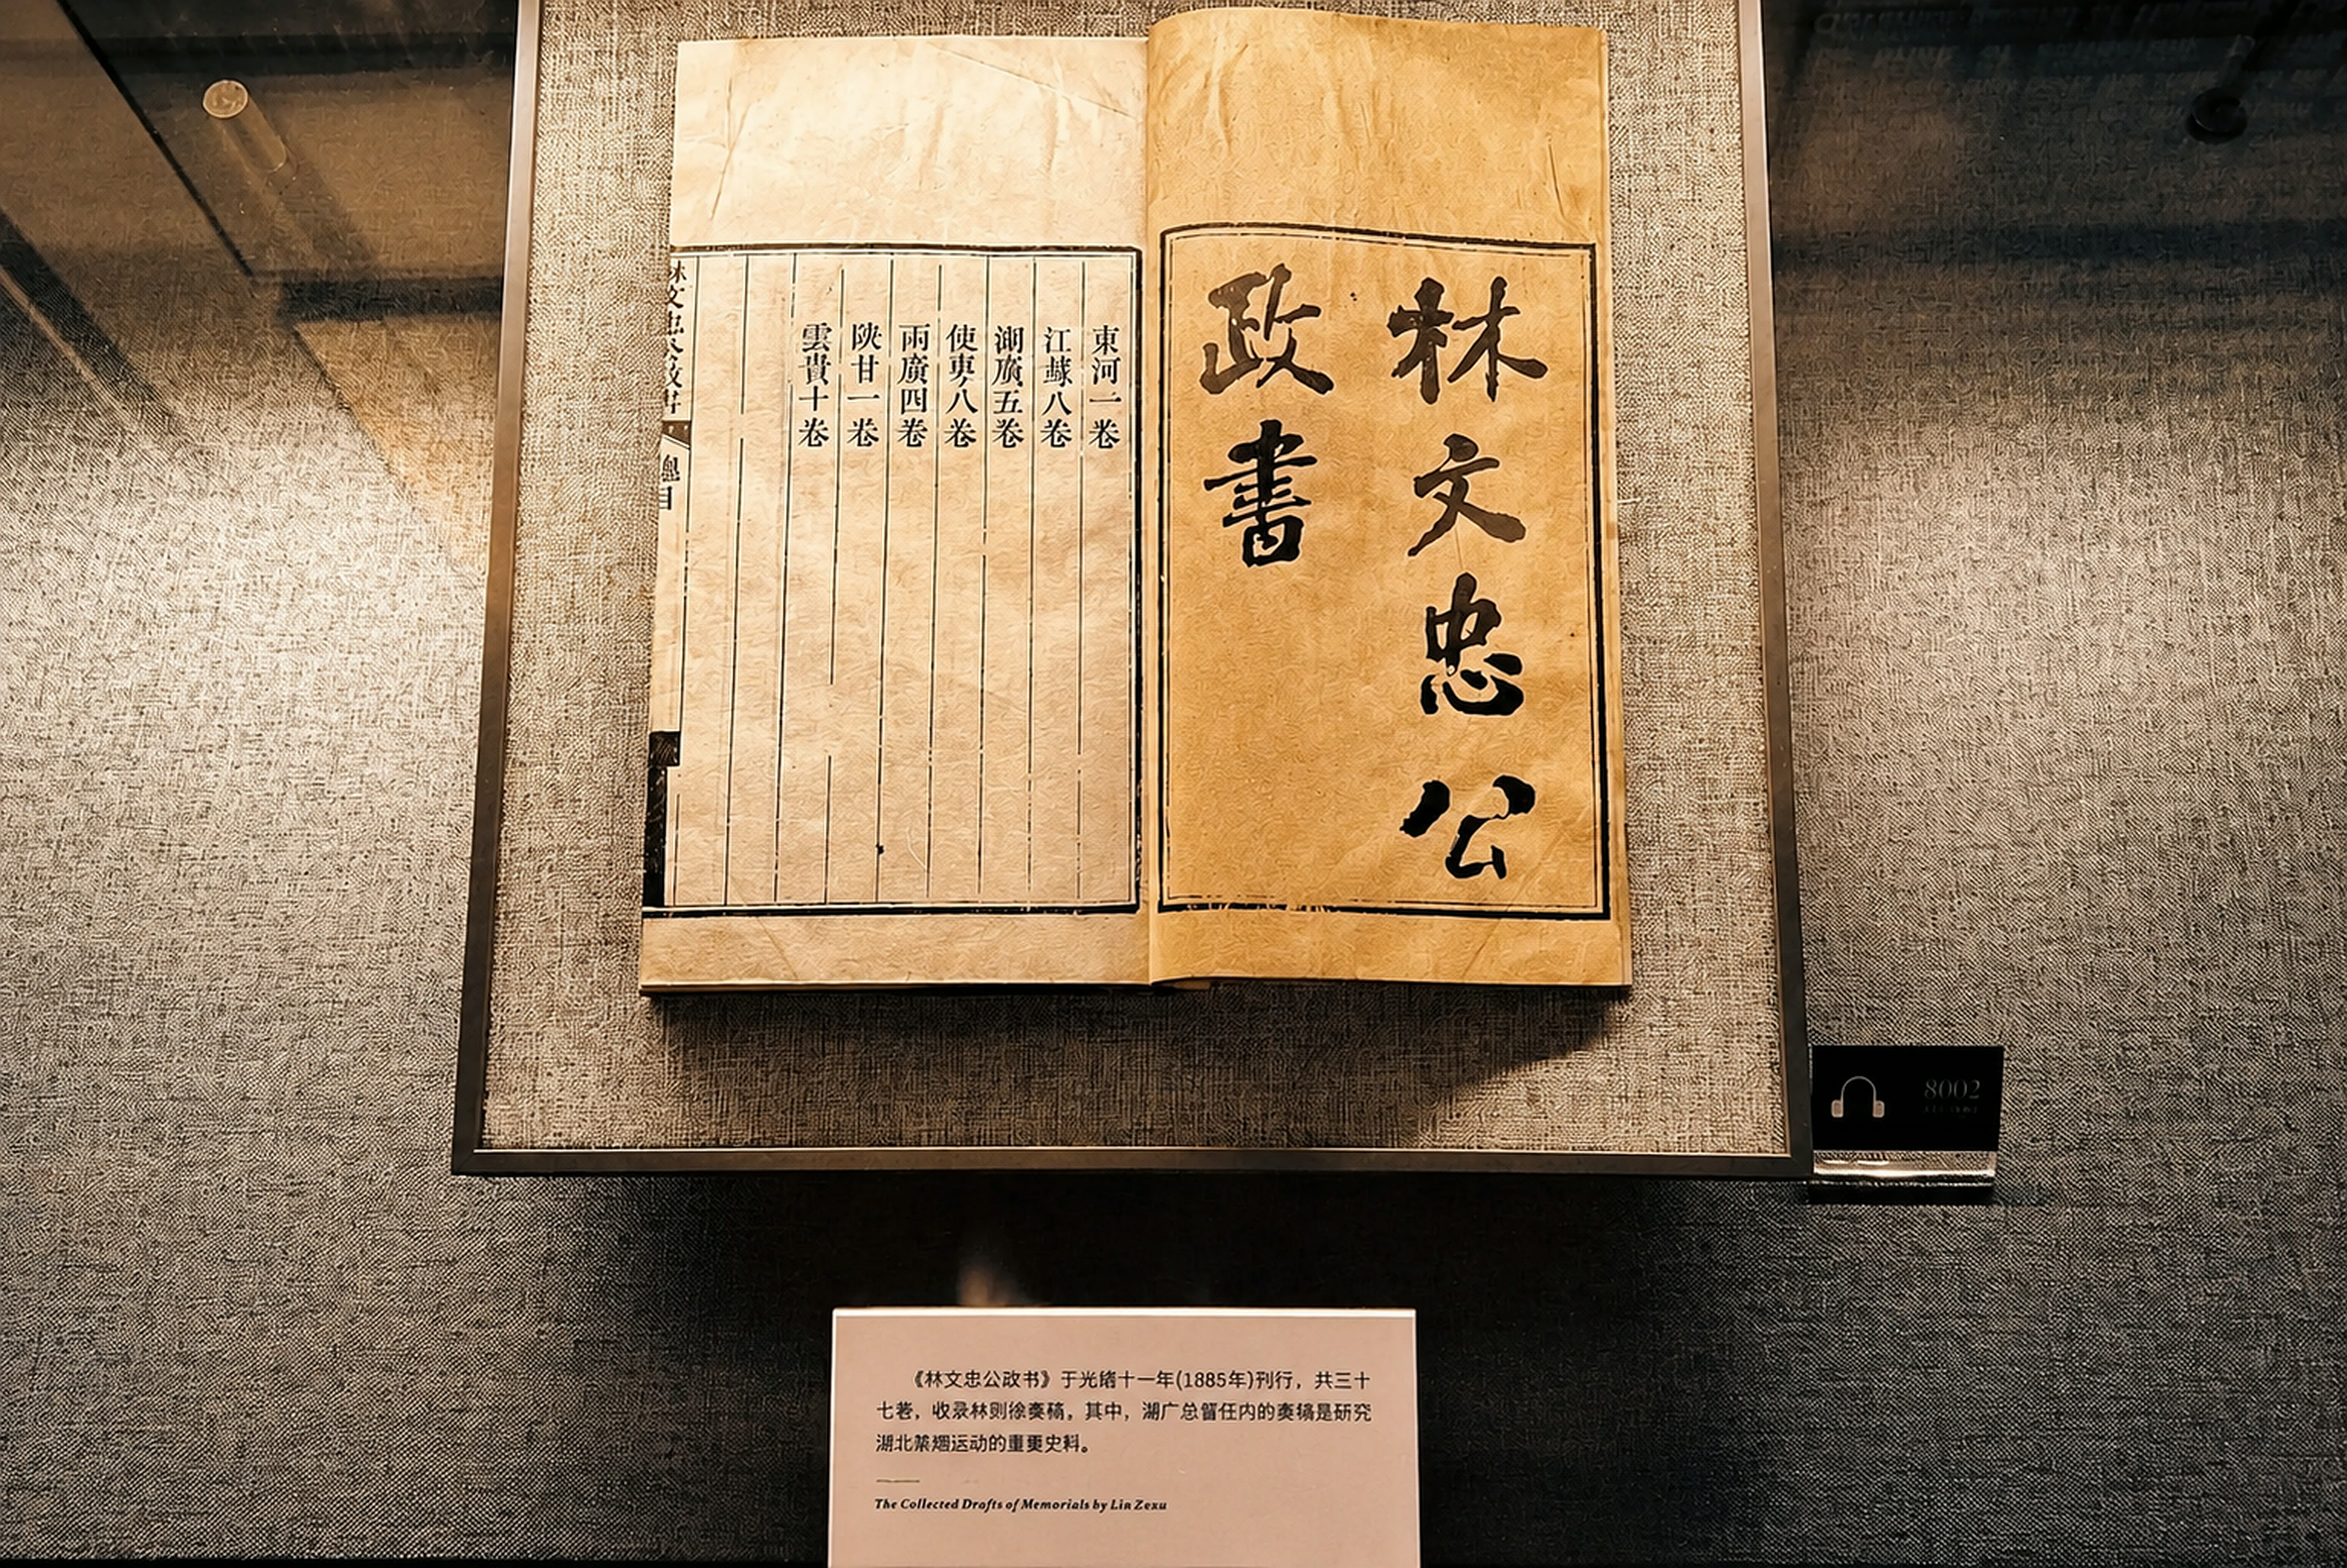 林文忠公
政書
東河一卷
江蘇八卷
湖廣五卷
使粤八卷
兩廣四卷
陝甘一卷
雲貴十卷
林文忠公政書
總目
8002
《林文忠公政书》于光绪十一年(1885年)刊行，共三十
七卷，收录林则徐奏稿。其中，湖广总督任内的奏稿是研究
湖北禁烟运动的重要史料。
The Collected Drafts of Memorials by Lin Zexu